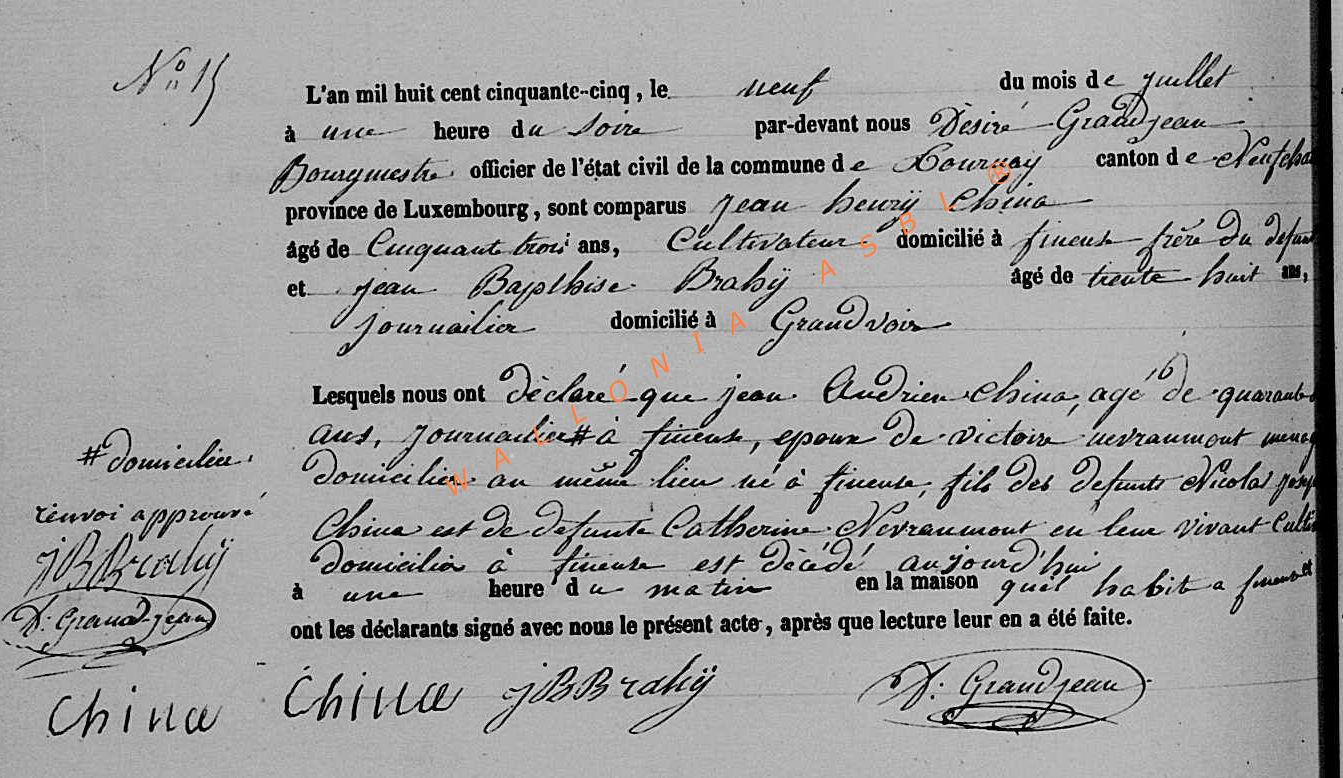 N° 15
L'an mil huit cent cinquante-cinq, le neuf du mois de juillet
à une heure du soire par-devant nous Dèsiré Grandjean
Bourgmestre officier de l'état civil de la commune de Tournay canton de Neufcha
province de Luxembourg, sont comparus jean henrÿ China
âgé de Cinquante trois ans, Cultivateur domicilié à fineuse frère du defun
et jean Bapthise Brahÿ âgé de trente huit ans,
journailier domicilié à Grandvoir
Lesquels nous ont dèclaré que jean Andrien China, agé de quarante 16
ans, journailier # à fineuse, epoux de victoire nevraumont menag
domicilier au même lieu né à fineuse, fils des defunts Nicolas josep
China est de defunte Catherine Nevraumont en leur vivant Culti
domicilier à fineuse est dècèdé aujourd'hui
à une heure du matin en la maison quel habit a fineuse et
ont les déclarants signé avec nous le présent acte, après que lecture leur en a été faite.
# domicilier
renvoi approuvé
JBBrahÿ
D. Grand-jean
China
China JBBrahÿ D. Grandjean
WALLONIA ASBL ®